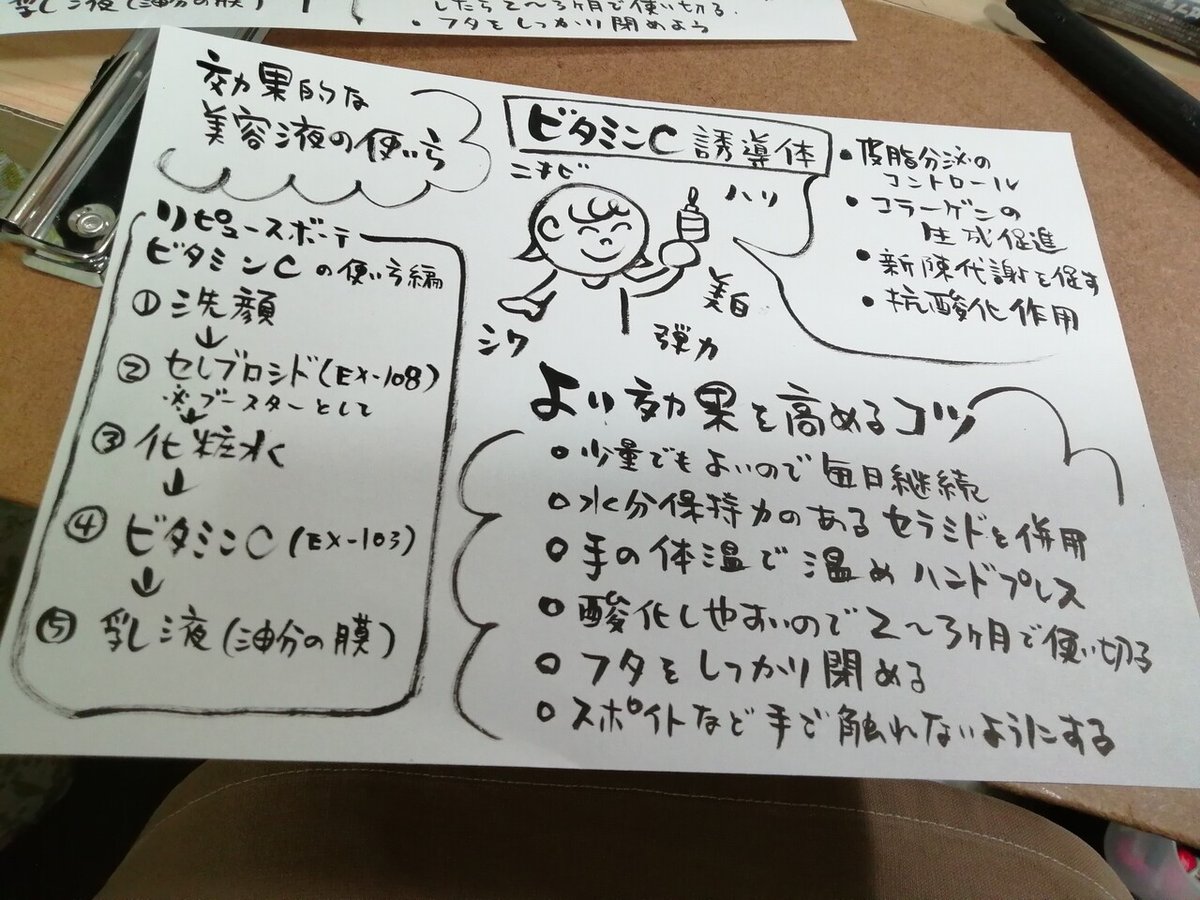 乳液(油分の膜)
したら2〜3ヶ月で使い切る.
・フタをしっかり閉めよう
効果的な
美容液の使い方
リピュースボーテ
ビタミンCの使い方編
① 洗顔
↓
② セレブロシド(EX-108)
※ブースターとして
↓
③ 化粧水
↓
④ ビタミンC(EX-103)
↓
⑤ 乳液(油分の膜)
ビタミンC誘導体
ニキビ
ハリ
美白
シワ
弾力
・皮脂分泌の
コントロール
・コラーゲンの
生成促進
・新陳代謝を促す
・抗酸化作用
より効果を高めるコツ
○少量でもよいので毎日継続
○水分保持力のあるセラミドを併用
○手の体温で温めハンドプレス
○酸化しやすいので2〜3ヶ月で使い切る
○フタをしっかり閉める
○スポイトなど手で触れないようにする